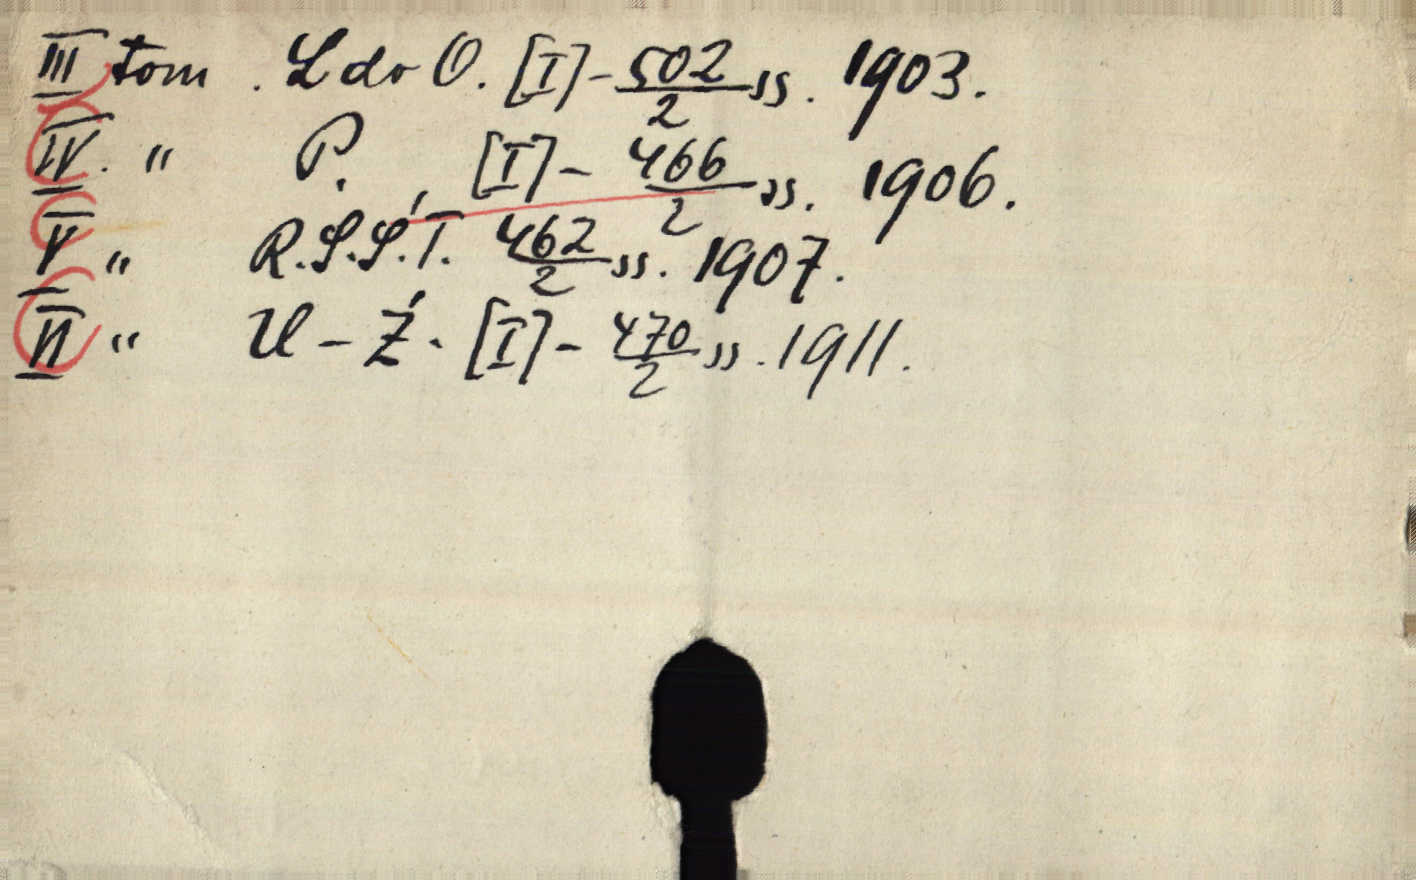 III tom. L do O. [I] - 502/2 ss. 1903.
IV. " P. [I] - 466/2 ss. 1906.
V " R.S.Ś.T. 462/2 ss. 1907.
VI " U - Ż. [I] - 470/2 ss. 1911.